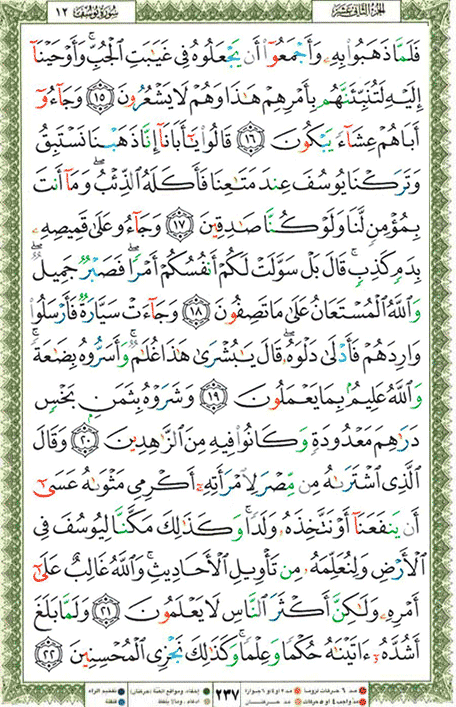 الجزء الثاني عشر
سورة يوسف ١٢
فَلَمَّا ذَهَبُوا۟ بِهِۦ وَأَجْمَعُوٓا۟ أَن يَجْعَلُوهُ فِى غَيَٰبَتِ ٱلْجُبِّ ۚ وَأَوْحَيْنَآ
إِلَيْهِ لَتُنَبِّئَنَّهُم بِأَمْرِهِمْ هَٰذَا وَهُمْ لَا يَشْعُرُونَ ١٥ وَجَآءُوٓ
أَبَاهُمْ عِشَآءً يَبْكُونَ ١٦ قَالُوا۟ يَٰٓأَبَانَآ إِنَّا ذَهَبْنَا نَسْتَبِقُ
وَتَرَكْنَا يُوسُفَ عِندَ مَتَٰعِنَا فَأَكَلَهُ ٱلذِّئْبُ ۖ وَمَآ أَنتَ
بِمُؤْمِنٍ لَّنَا وَلَوْ كُنَّا صَٰدِقِينَ ١٧ وَجَآءُو عَلَىٰ قَمِيصِهِۦ
بِدَمٍ كَذِبٍ ۚ قَالَ بَلْ سَوَّلَتْ لَكُمْ أَنفُسُكُمْ أَمْرًا ۖ فَصَبْرٌ جَمِيلٌ ۖ
وَٱللَّهُ ٱلْمُسْتَعَانُ عَلَىٰ مَا تَصِفُونَ ١٨ وَجَآءَتْ سَيَّارَةٌ فَأَرْسَلُوا۟
وَارِدَهُمْ فَأَدْلَىٰ دَلْوَهُۥ ۖ قَالَ يَٰبُشْرَىٰ هَٰذَا غُلَٰمٌ ۚ وَأَسَرُّوهُ بِضَٰعَةً ۚ
وَٱللَّهُ عَلِيمٌۢ بِمَا يَعْمَلُونَ ١٩ وَشَرَوْهُ بِثَمَنٍۭ بَخْسٍ
دَرَٰهِمَ مَعْدُودَةٍ وَكَانُوا۟ فِيهِ مِنَ ٱلزَّٰهِدِينَ ٢٠ وَقَالَ
ٱلَّذِى ٱشْتَرَىٰهُ مِن مِّصْرَ لِٱمْرَأَتِهِۦٓ أَكْرِمِى مَثْوَىٰهُ عَسَىٰٓ
أَن يَنفَعَنَآ أَوْ نَتَّخِذَهُۥ وَلَدًا ۚ وَكَذَٰلِكَ مَكَّنَّا لِيُوسُفَ فِى
ٱلْأَرْضِ وَلِنُعَلِّمَهُۥ مِن تَأْوِيلِ ٱلْأَحَادِيثِ ۚ وَٱللَّهُ غَالِبٌ عَلَىٰٓ
أَمْرِهِۦ وَلَٰكِنَّ أَكْثَرَ ٱلنَّاسِ لَا يَعْلَمُونَ ٢١ وَلَمَّا بَلَغَ
أَشُدَّهُۥٓ ءَاتَيْنَٰهُ حُكْمًا وَعِلْمًا ۚ وَكَذَٰلِكَ نَجْزِى ٱلْمُحْسِنِينَ ٢٢
مد ٦ حركات لزوماً مد ٢ او ٤ او ٦ جوازاً
مد واجب ٤ او ٥ حركات مد حركتان
٢٣٧
إخفاء، ومواقع الغنة (حركتان) تفخيم الراء
ادغام، وما لا يلفظ قلقلة